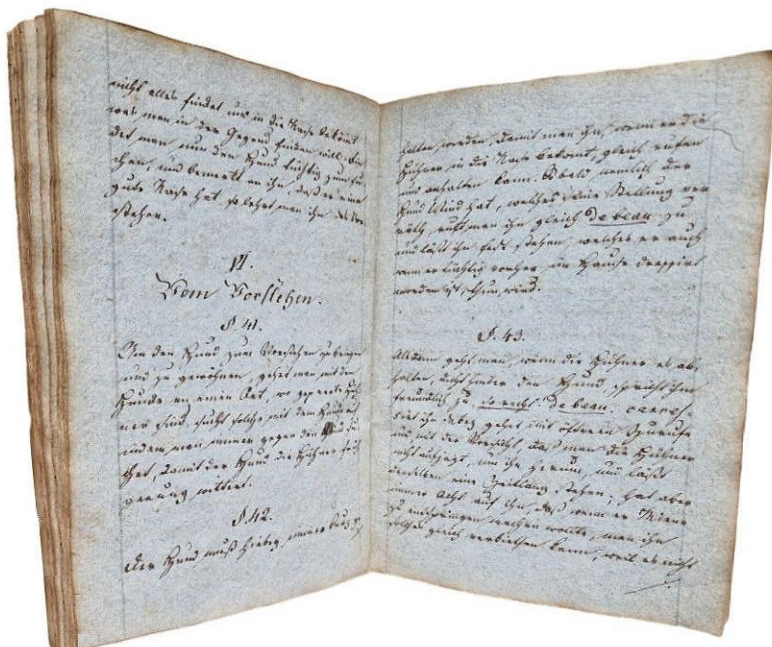 nicht alles findet und in die Nase bekomt
was man in der Gegend finden will. Fin-
det man nun den Hund tüchtig zum su-
chen, und bemerkt an ihn, daß er eine
gute Nase hat, so lehrt man ihn das Vor-
stehen.
VI.
Vom Vorstehen.
§. 41.
Um den Hund zum Vorstehen zu bringen
und zu gewöhnen, gehet man mit dem
Hunde an einen Ort, wo gepaarte Hüh-
ner sind, sucht solche mit dem Hunde auf
indem man immer gegen den Wind su-
chet, damit der Hund die Hühner
genung wittert.
§. 42.
Der Hund muß hiebey immer kurz ge-
halten werden, damit man ihn, wenn er die
Hühner in die Nase bekomt, gleich rufen
und anhalten kann. Sobald nemlich der
Hund Wind hat, welches seine Stellung ver-
räth, ruft man ihn gleich de beau zu
und läßt ihn fest stehen, welches er auch
wenn er tüchtig vorher im Hause dreßirt
worden ist, thun wird.
§. 43.
Alsdann geht man, wenn die Hühner es ab-
halten, dicht hinter den Hund, spricht ihm
freundlich zu, so recht de beau. caress-
irt ihn dabey, gehet mit öfterm Zurufe
und mit der Vorsicht, daß man die Hühner
nicht aufjagt, um ihn herum, und läßt
denselben eine Zeitlang stehen; hat aber
immer Acht auf ihn, daß wenn er Miene
zu einspringen machen wollte, man ihm
solches gleich verbiethen kann, weil es nicht